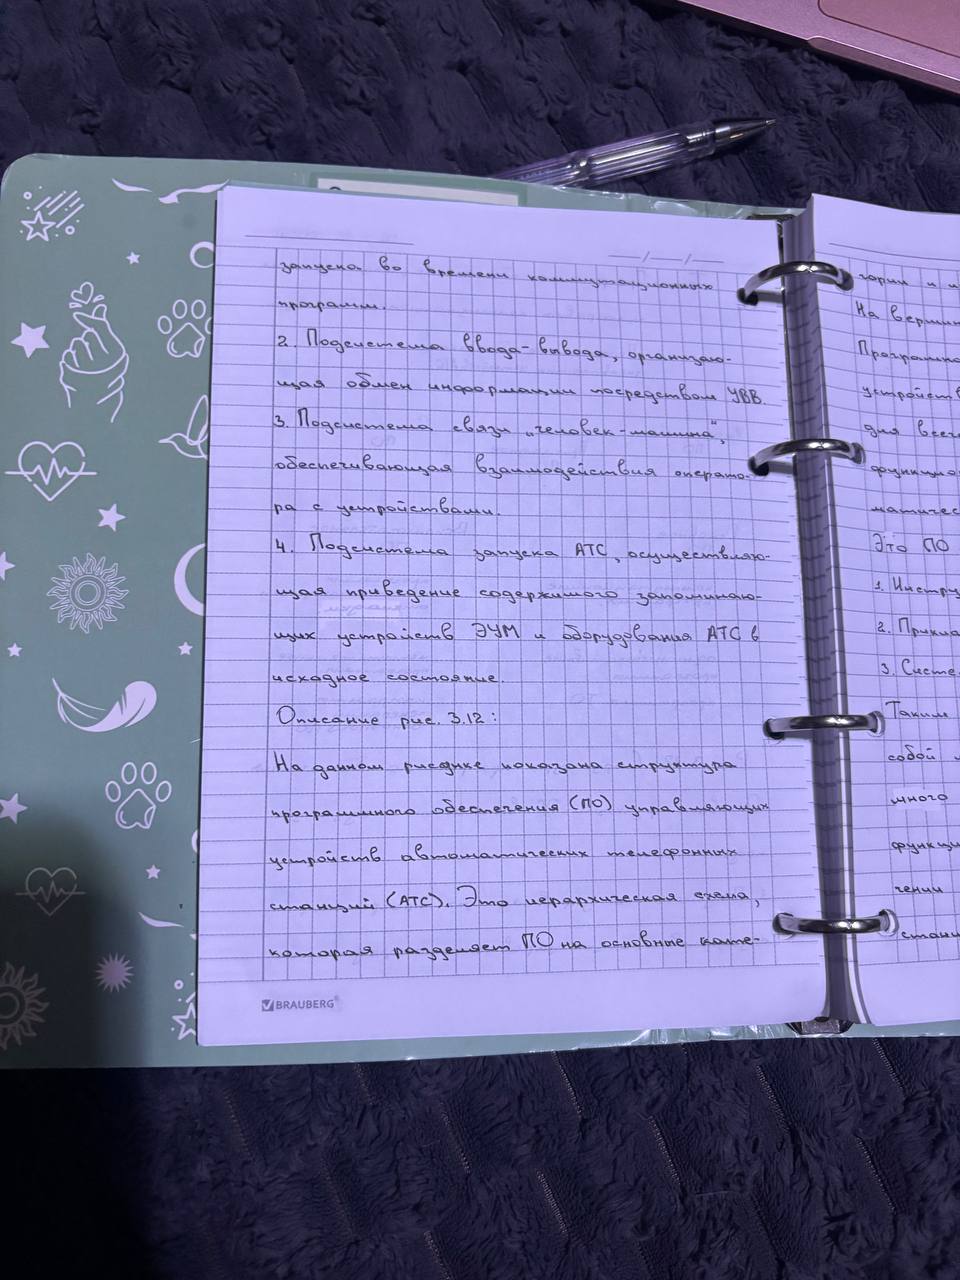 запуска во времени коммутационных
программ.
2. Подсистема ввода-вывода, организую-
щая обмен информации посредством УВВ.
3. Подсистема связи „человек-машина",
обеспечивающая взаимодействия операто-
ра с устройствами.
4. Подсистема запуска АТС, осуществляю-
щая приведение содержимого запоминаю-
щих устройств ЭУМ и оборудования АТС в
исходное состояние.
Описание рис. 3.12:
На данном рисунке показана структура
программного обеспечения (ПО) управляющих
устройств автоматических телефонных
станций (АТС). Это иерархическая схема,
которая разделяет ПО на основные кате-
BRAUBERG
гории и
На вершин
Программно
устройств
для всего
функцио
матичес
Это ПО
1. Инстру
2. Прикла
3. Систе
Таким
собой
много
функци
чении
станц